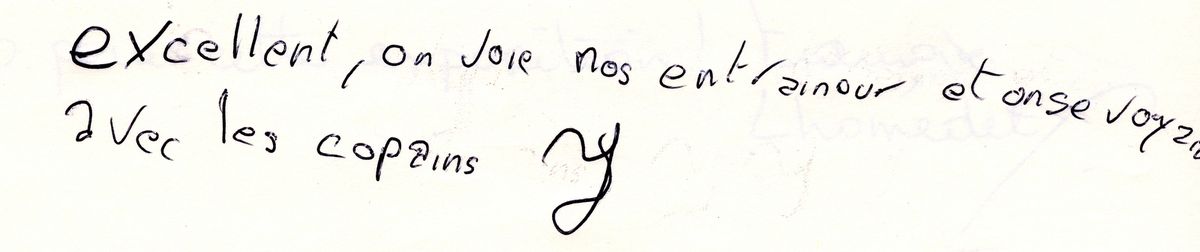 excellent, on Joie nos entrainour et on se voyain
avec les copains